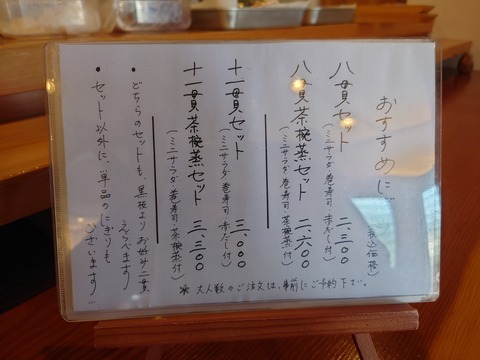 おすすめに…
(税込価格)
八貫セット 二、二〇〇
(ミニサラダ 巻寿司 赤だし付)
八貫茶椀蒸セット 二、六〇〇
(ミニサラダ 巻寿司 茶椀蒸付)
十一貫セット 三、〇〇〇
(ミニサラダ 巻寿司 赤だし付)
十一貫茶椀蒸セット 三、三〇〇
(ミニサラダ 巻寿司 茶椀蒸付)
• どちらのセットも、黒板より お好み二貫
えらべます
• セット以外に、単品のにぎりも
ございます…
※ 大人数のご注文は、事前にご予約下さい。